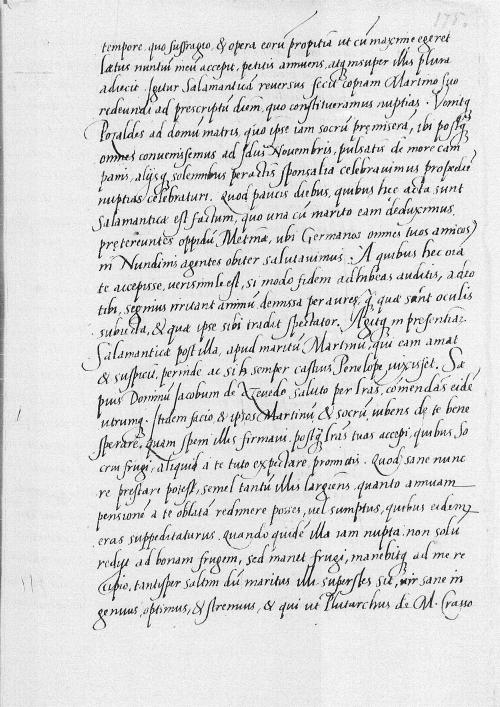 175.
tempore. quo suffragio, & opera eorũ propitiã ut cũ maxime egeret
lætus nuntiũ meũ accepit, petitis annuens, atq̃ insuper illis plura
adiecit. Igitur Salamanticã reversus fecit copiam Martino suo
redeundi ad præscriptũ diem, quo constitueramus nuptias. Venitq̃
Pozaldes ad domũ matris, quo ipse iam socrũ præmiserã, ibi postq̃
omnes convenissemus ad Idus Novembris, pulsatis de more cam
panis, alijsq̃ solemnibus peractis sponsalia celebravimus propediẽ
nuptias celebraturi. Quod paucis diebus, quibus hec acta sunt
Salamanticæ est factum, quo una cũ marito eam deduximus
prętereuntes oppidũ Metinæ, ubi Germanos omnes tuos amicos
in Nundinis agentes obiter salutavimus. A quibus hec oĩa
te accepisse, verisimile est, si modo fidem adhibeas auditis, adeo
tibi, segnius irritant animũ demissa per aures, q̃ quæ sunt oculis
subiecta, & quæ ipse sibi tradit spectator. Agitq̃ in præsentiaꝝ
Salamanticæ post illa, apud maritũ Martinũ, qui eam amat
& suspicit, perinde ac si semper castius Penelope vixisset. Sæ
pius Dominũ Jacobum de Azevedo saluto per lr̃as, cõmendãs eidẽ
utrumq̃. Itidem facio & ipsos Martinũ & socrũ iubens de te bene
sperare, quam spem illis firmavi postq̃ lr̃as tuas accepi, quibus so
crui frugi, aliquid a te tuto expectare promittis. Quod sane nunc
re prestari potest, semel tantũ illis largiens, quanto annuam
pensionẽ a te oblatã redimere posses, vel sumptus, quibus eidem
eras suppeditaturus. Quando quidẽ illa iam nupta non solũ
redijt ad bonam frugem, sed manet frugi, manebitq̃ ad me re
cipio, tantisper saltim dũ maritus illi superstes sit, vir sane in
genuus, optimus, & strenuus, & qui ut Plutarchus de M. Crasso